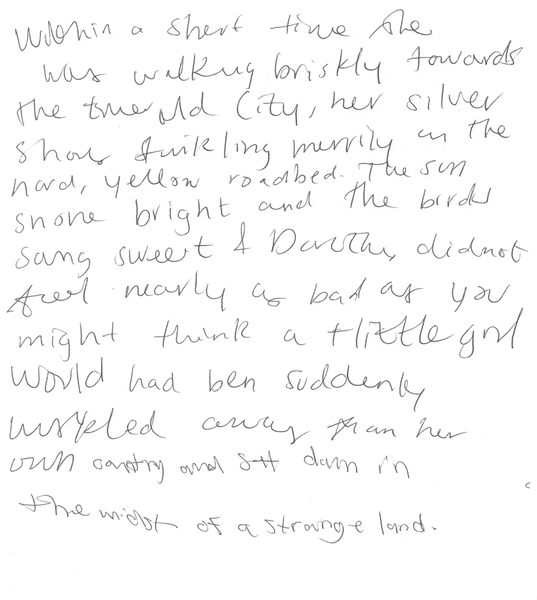 Within a short time she
was walking briskly towards
the Emerald City, her silver
shoes twinkling merrily on the
hard, yellow roadbed. The sun
shone bright and the birds
sang sweet & Dorothy did not
feel nearly as bad as you
might think a little girl
would had ben suddenly
whisked away from her
own country and set down in
the midst of a strange land.